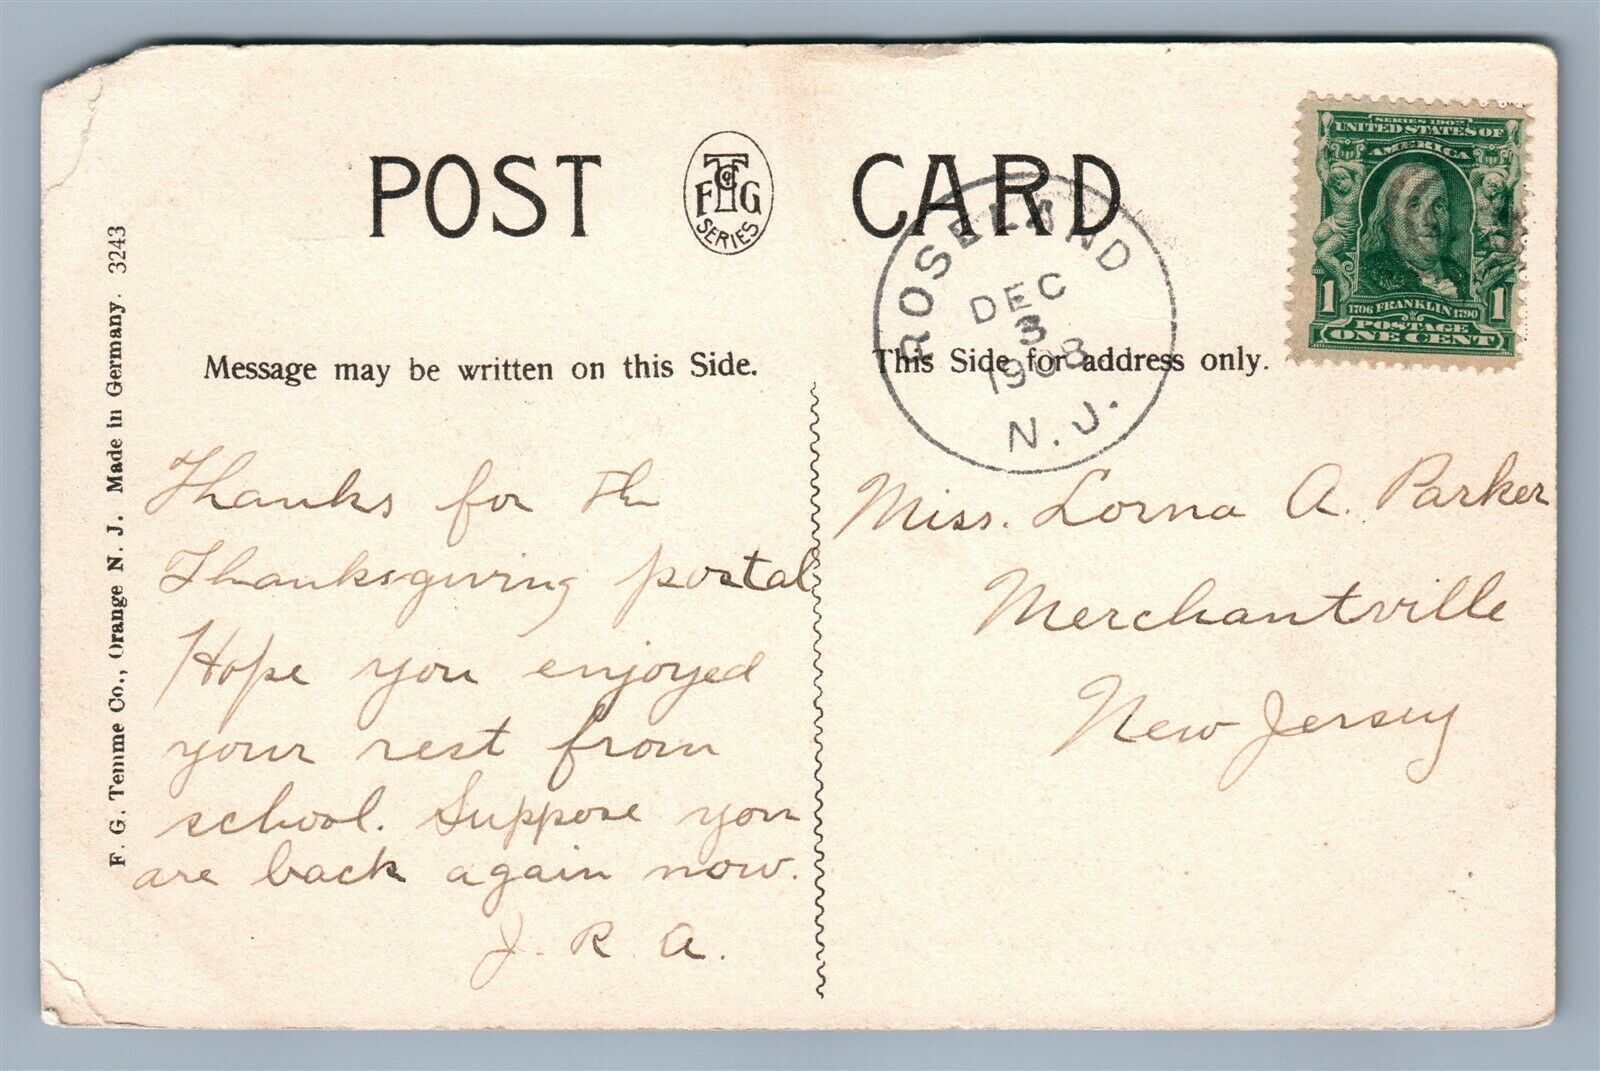 POST CARD
F T & Co G
SERIES
ROSELAND
DEC
3
1908
N.J.
SERIES 1902
UNITED STATES OF
AMERICA
1 1706 FRANKLIN 1790 1
POSTAGE
ONE CENT
Message may be written on this Side.
This Side for address only.
F. G. Temme Co., Orange N. J. Made in Germany. 3243
Thanks for th
Thanksgiving postal
Hope you enjoyed
your rest from
school. Suppose you
are back again now.
J. R. A.
Miss. Lorna A. Parker
Merchantville
New Jersey